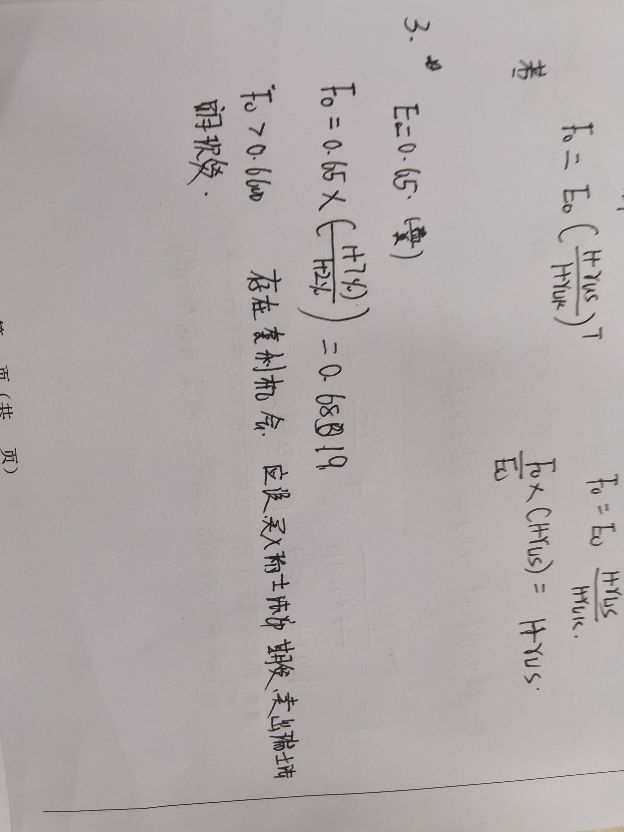 F₀ = E₀ ( (1+rus) / (1+ruk) )ᵀ
F₀ = E₀ (1+rus) / (1+ruk).
F₀/E₀ × (1+rus) = 1+rus.
3.
E₀=0.65.
F₀ = 0.65 × ( (1+7%) / (1+2%) ) = 0.6819
F₀ > 0.6600 存在套利机会. 应该买入瑞士法郎期货,卖出瑞士法
郎现货.
第 页(共 页)